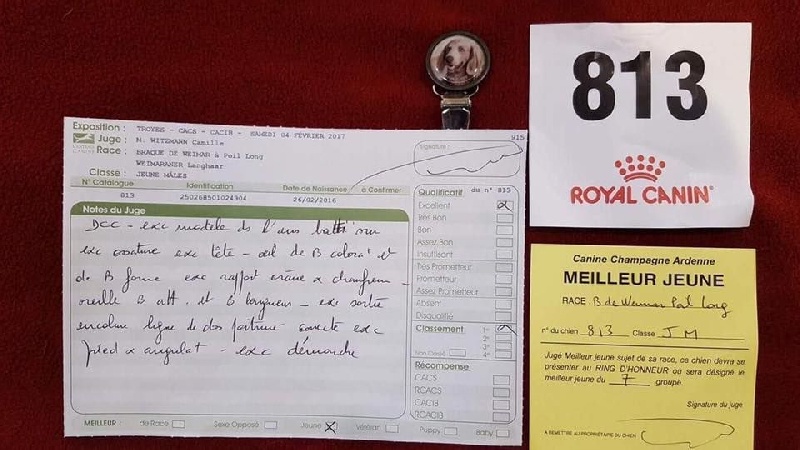 Exposition : TROYES - CACS - CACIB - SAMEDI 04 FÉVRIER 2017
Juge : M. WITZMANN Camille
Race : BRAQUE DE WEIMAR à Poil Long
WEIMARANER Langhaar
Classe : JEUNE MÂLES
Signature :
N° Catalogue Identification Date de Naissance à Confirmer
813 250268501028904 24/02/2016
Notes du Juge
DCC - exc modèle ds l'ens
exc ossature exc tête - oeil de B color° et
de B forme exc rapport crâne chanfrein
oreille B att. et B longueur - exc sortie
encolure ligne de dos poitrine exc
pied angulat - exc démarche
Qualificatif du n° 813
Excellent X
Très Bon
Bon
Assez Bon
Insuffisant
Très Prometteur
Prometteur
Assez Prometteur
Absent
Disqualifié
Classement
Non Classé
Récompense
CACS
RCACS
CACIB
RCACIB
MEILLEUR : de Race Sexe Opposé Jeune X Vétéran Puppy Baby
813
ROYAL CANIN
Canine Champagne Ardenne
MEILLEUR JEUNE
RACE B de Weimar Poil Long
n° du chien 813 Classe J M
Jugé Meilleur jeune sujet de sa race, ce chien devra se
présenter au RING D'HONNEUR où sera désigné le
meilleur jeune du 7 groupe.
Signature du juge
A REMETTRE AU PROPRIETAIRE DU CHIEN